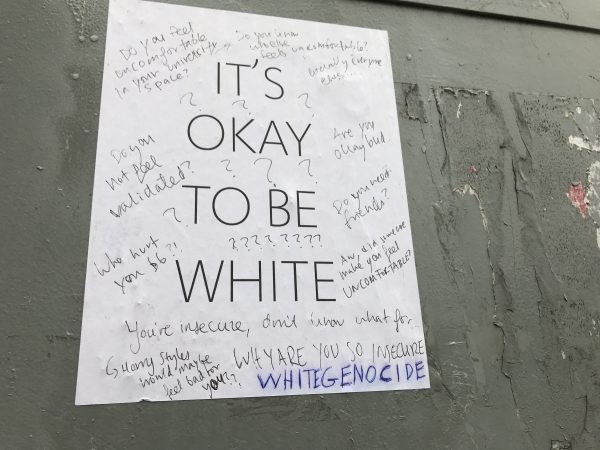 Do you feel
uncomfortable
in your university
space?
Do you know
who else
feels uncomfortable?
literally everyone
else
IT'S
? ? ?
OKAY
? ? ? ?
TO BE
?
???? ????
WHITE
Do you
not feel
validated?
Who hurt
you bb?!
Are you
okay bud
Do you need
friends?
Aw did someone
make you feel
UNCOMFORTABLE?
You're insecure, don't know what for
Harry Styles
would maybe
feel bad for
you??
WHY ARE YOU SO INSECURE
WHITEGENOCIDE